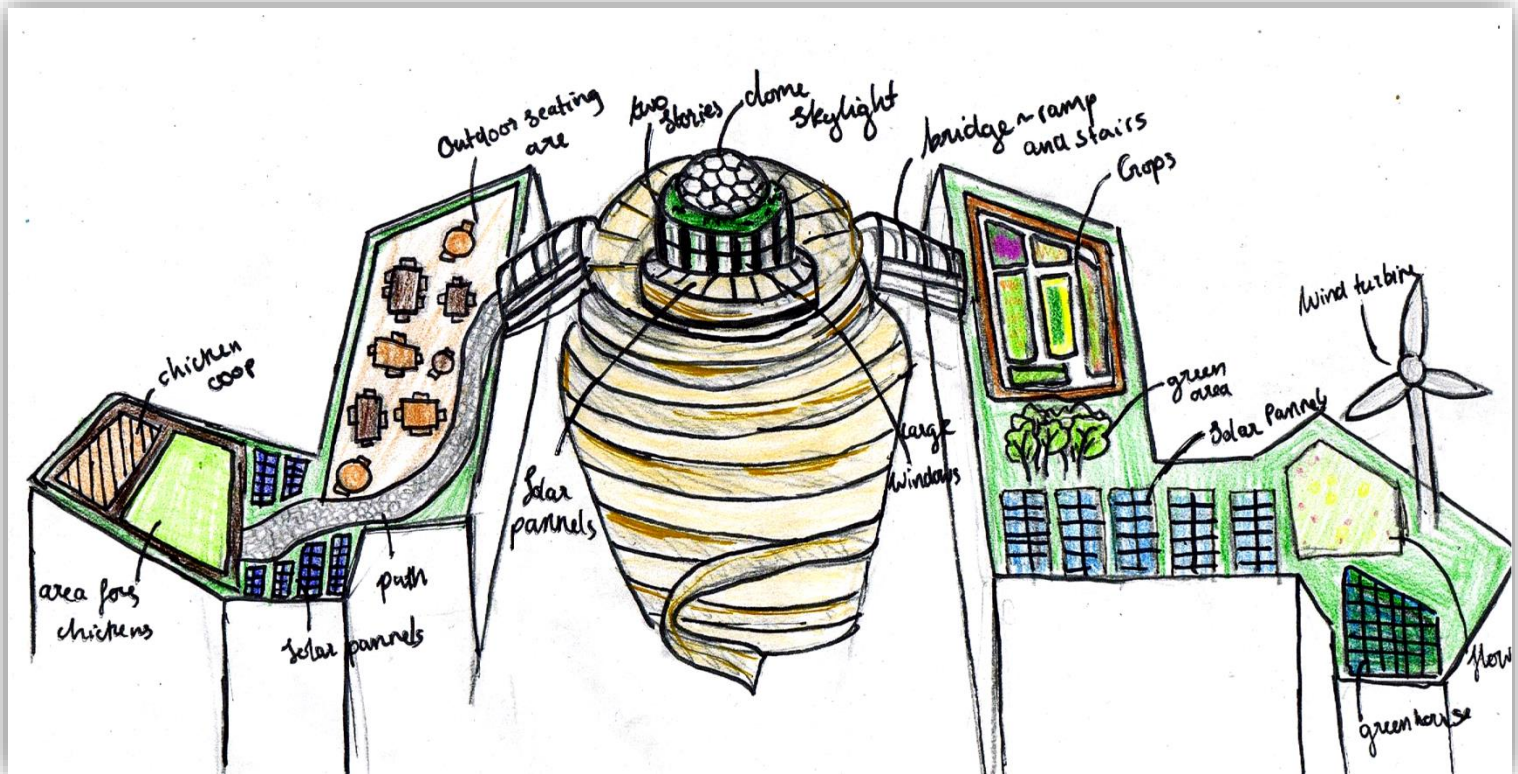 Outdoor seating
are
two
stories
dome
skylight
bridge ~ ramp
and stairs
Crops
Wind turbine
chicken
coop
green
area
Solar Pannels
Large
Windows
Solar
pannels
area for
chickens
path
Solar pannels
flow
greenhouse